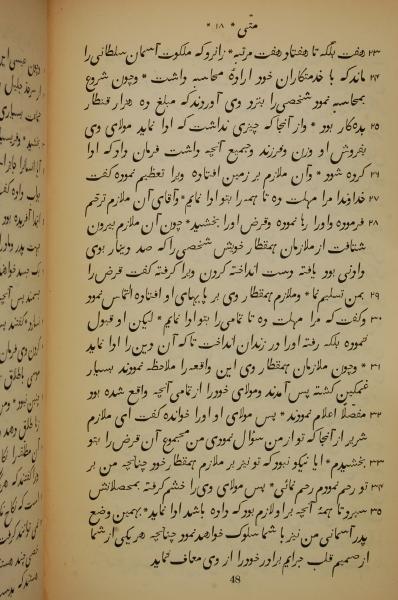 متی * ۱۸ *
۲۳ هفت بلکه تا هفتاد و هفت مرتبه * زانرو که ملکوت آسمان سلطانی را
۲۴ ماند که با خدمتکاران خود ارادهٔ محاسبه داشت * وچون شروع
بمحاسبه نمود شخصی را بنزد وی آوردند که مبلغ ده هزار قنطار
۲۵ بدهکار بود * و از آنجا که چیزی نداشت که ادا نماید مولای وی
بفروش او و زن و فرزند و جمیع آنچه داشت فرمان داد که ادا
۲۶ کرده شود * و آن ملازم بر زمین افتاده ویرا تعظیم نموده گفت
۲۷ خداوندا مرا مهلت ده تا همه را بتو ادا نمایم * و آقای آن ملازم ترحم
۲۸ فرموده و اورا رها نموده و قرض اورا بخشید * چون آن ملازم بیرون
شتافت از ملازمان همقطار خویش شخصی را که صد دینار بوی
دادنی بود یافته دست انداخته گردن ویرا گرفته گفت قرض را
۲۹ بمن تسلیم نما * و ملازم همقطار وی بر پایهای او افتاده التماس نمود
۳۰ و گفت که مرا مهلت ده تا تمامی را بتو ادا نمایم * لیکن او قبول
ننموده بلکه رفته اورا در زندان انداخت تا که آن دین را ادا نماید
۳۱ * وچون ملازمان همقطار وی این واقعه را ملاحظه نمودند بسیار
غمگین گشته پس آمدند و مولای خودرا از تمامی آنچه واقع شده بود
۳۲ مفصلاً اعلام نمودند * پس مولای او اورا خوانده گفت ای ملازم
شریر از آنجا که تو از من سوال نمودی من مجموع آن قرض را بتو
۳۳ بخشیدم * ایا نیکو نبود که تو نیز بر ملازم همقطار خود چنانچه من بر
۳۴ تو رحم نمودم رحم نمائی * پس مولای وی را خشم گرفته بمحصلانش
۳۵ سپرد تا همهٔ آنچه بر او لازم بود که داده باشد ادا نماید * بهمین وضع
پدر آسمانی من نیز با شما سلوک خواهد نمود چنانچه هر یکی از شما
از صمیم قلب جرایم برادر خودرا از وی معاف ننماید
48